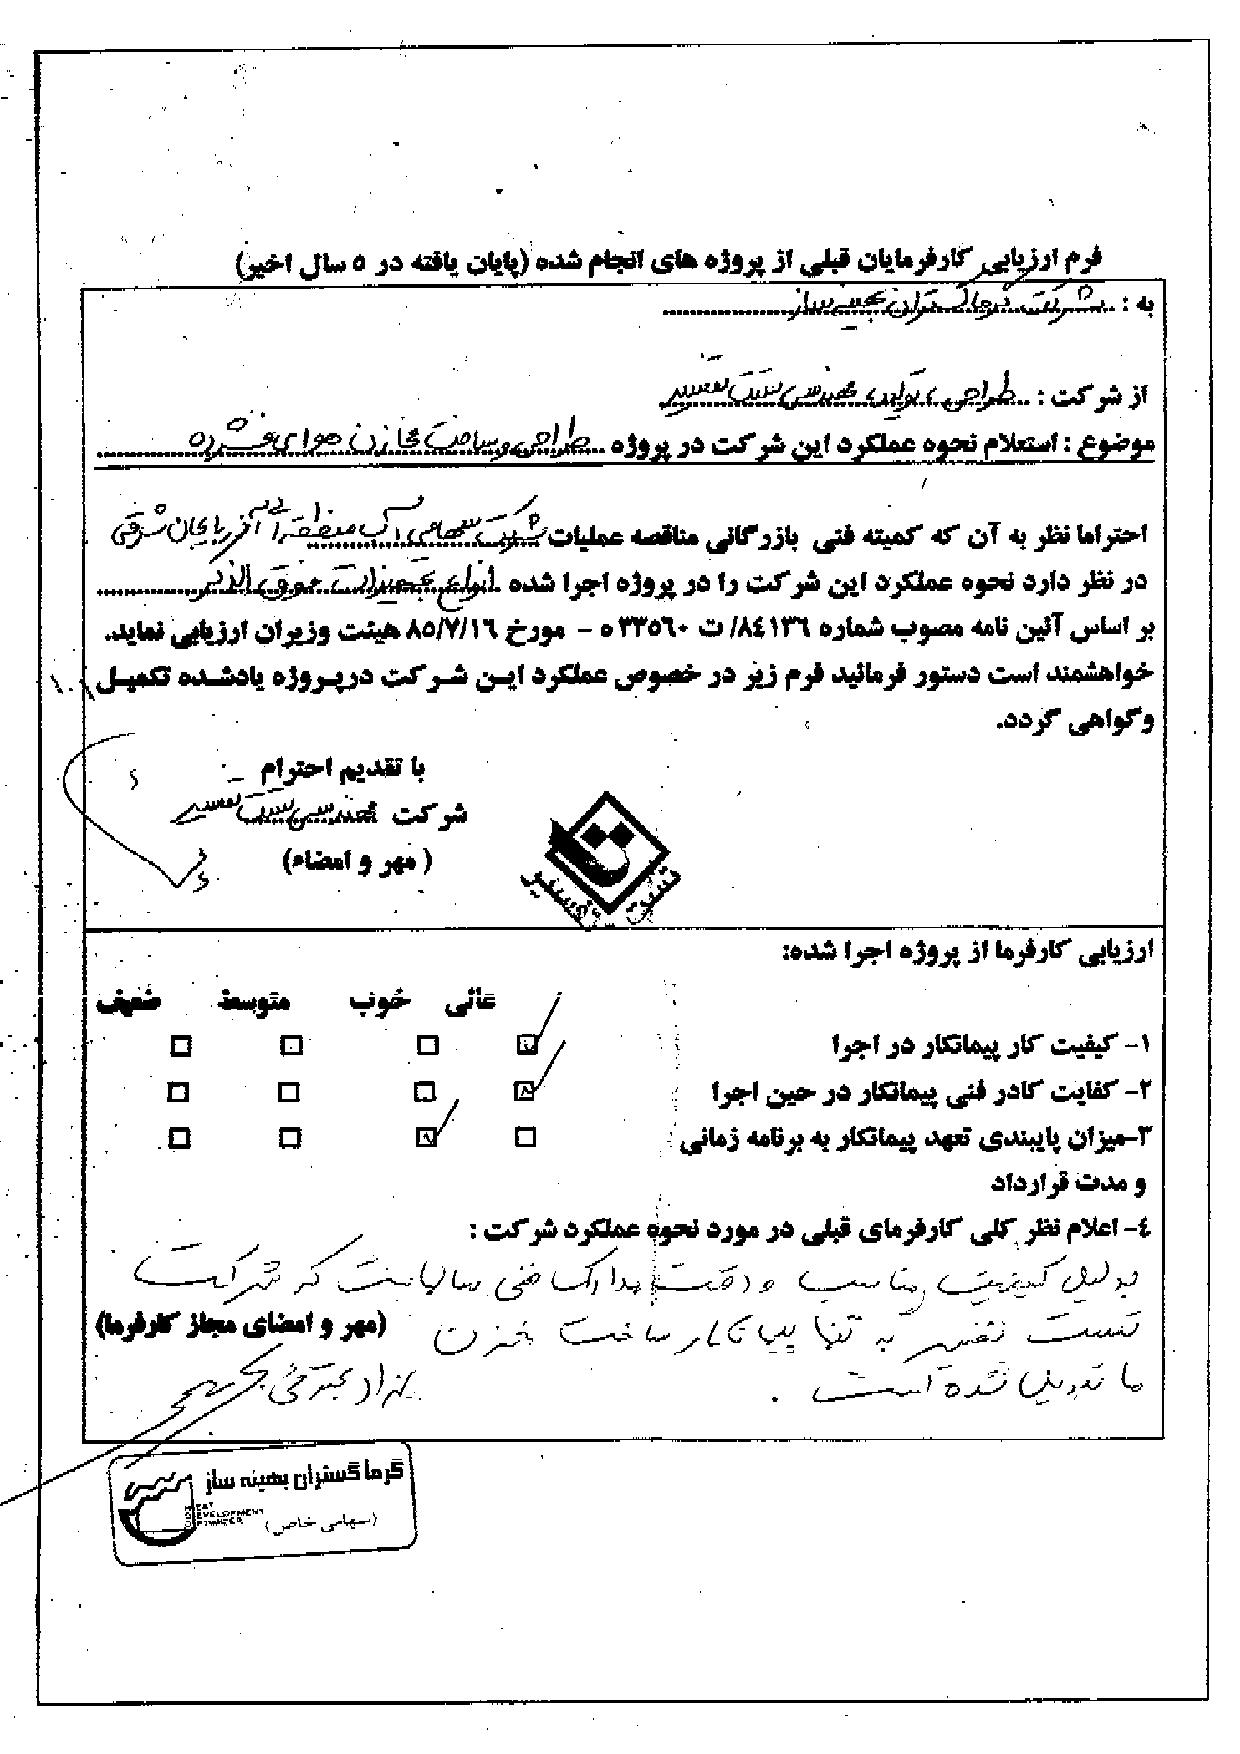 فرم ارزیابی کارفرمایان قبلی از پروژه های انجام شده (پایان یافته در ۵ سال اخیر)
به : شرکت گرما گستران بهینه ساز
از شرکت : طراحی و تولید مهندسی تست تفسیر
موضوع : استعلام نحوه عملکرد این شرکت در پروژه طراحی و ساخت مخازن هوای فشرده
احتراما نظر به آن که کمیته فنی بازرگانی مناقصه عملیات شرکت سهامی آب منطقه ای آذربایجان شرقی
در نظر دارد نحوه عملکرد این شرکت را در پروژه اجرا شده انواع تجهیزات فوق الذکر
بر اساس آئین نامه مصوب شماره ۸۴۱۳۶/ ت ۳۳۵۶۰ ه - مورخ ۸۵/۷/۱۶ هیئت وزیران ارزیابی نماید.
خواهشمند است دستور فرمائید فرم زیر در خصوص عملکرد این شرکت درپروژه یادشده تکمیل
وگواهی گردد.
با تقدیم احترام
شرکت مهندسی تست تفسیر
( مهر و امضاء)
ارزیابی کارفرما از پروژه اجرا شده:
عالی خوب متوسط ضعیف
۱- کیفیت کار پیمانکار در اجرا
۲- کفایت کادر فنی پیمانکار در حین اجرا
۳-میزان پایبندی تعهد پیمانکار به برنامه زمانی
و مدت قرارداد
۴- اعلام نظر کلی کارفرمای قبلی در مورد نحوه عملکرد شرکت :
بدلیل کیفیت مناسب و دقت مدارک فنی سالیانست که شرکت
تست تفسیر به تنها پیمانکار ساخت مخزن
(مهر و امضای مجاز کارفرما)
ما تبدیل شده است .
گرما گستران بهینه ساز
(سهامی خاص)
HEAT
DEVELOPMENT